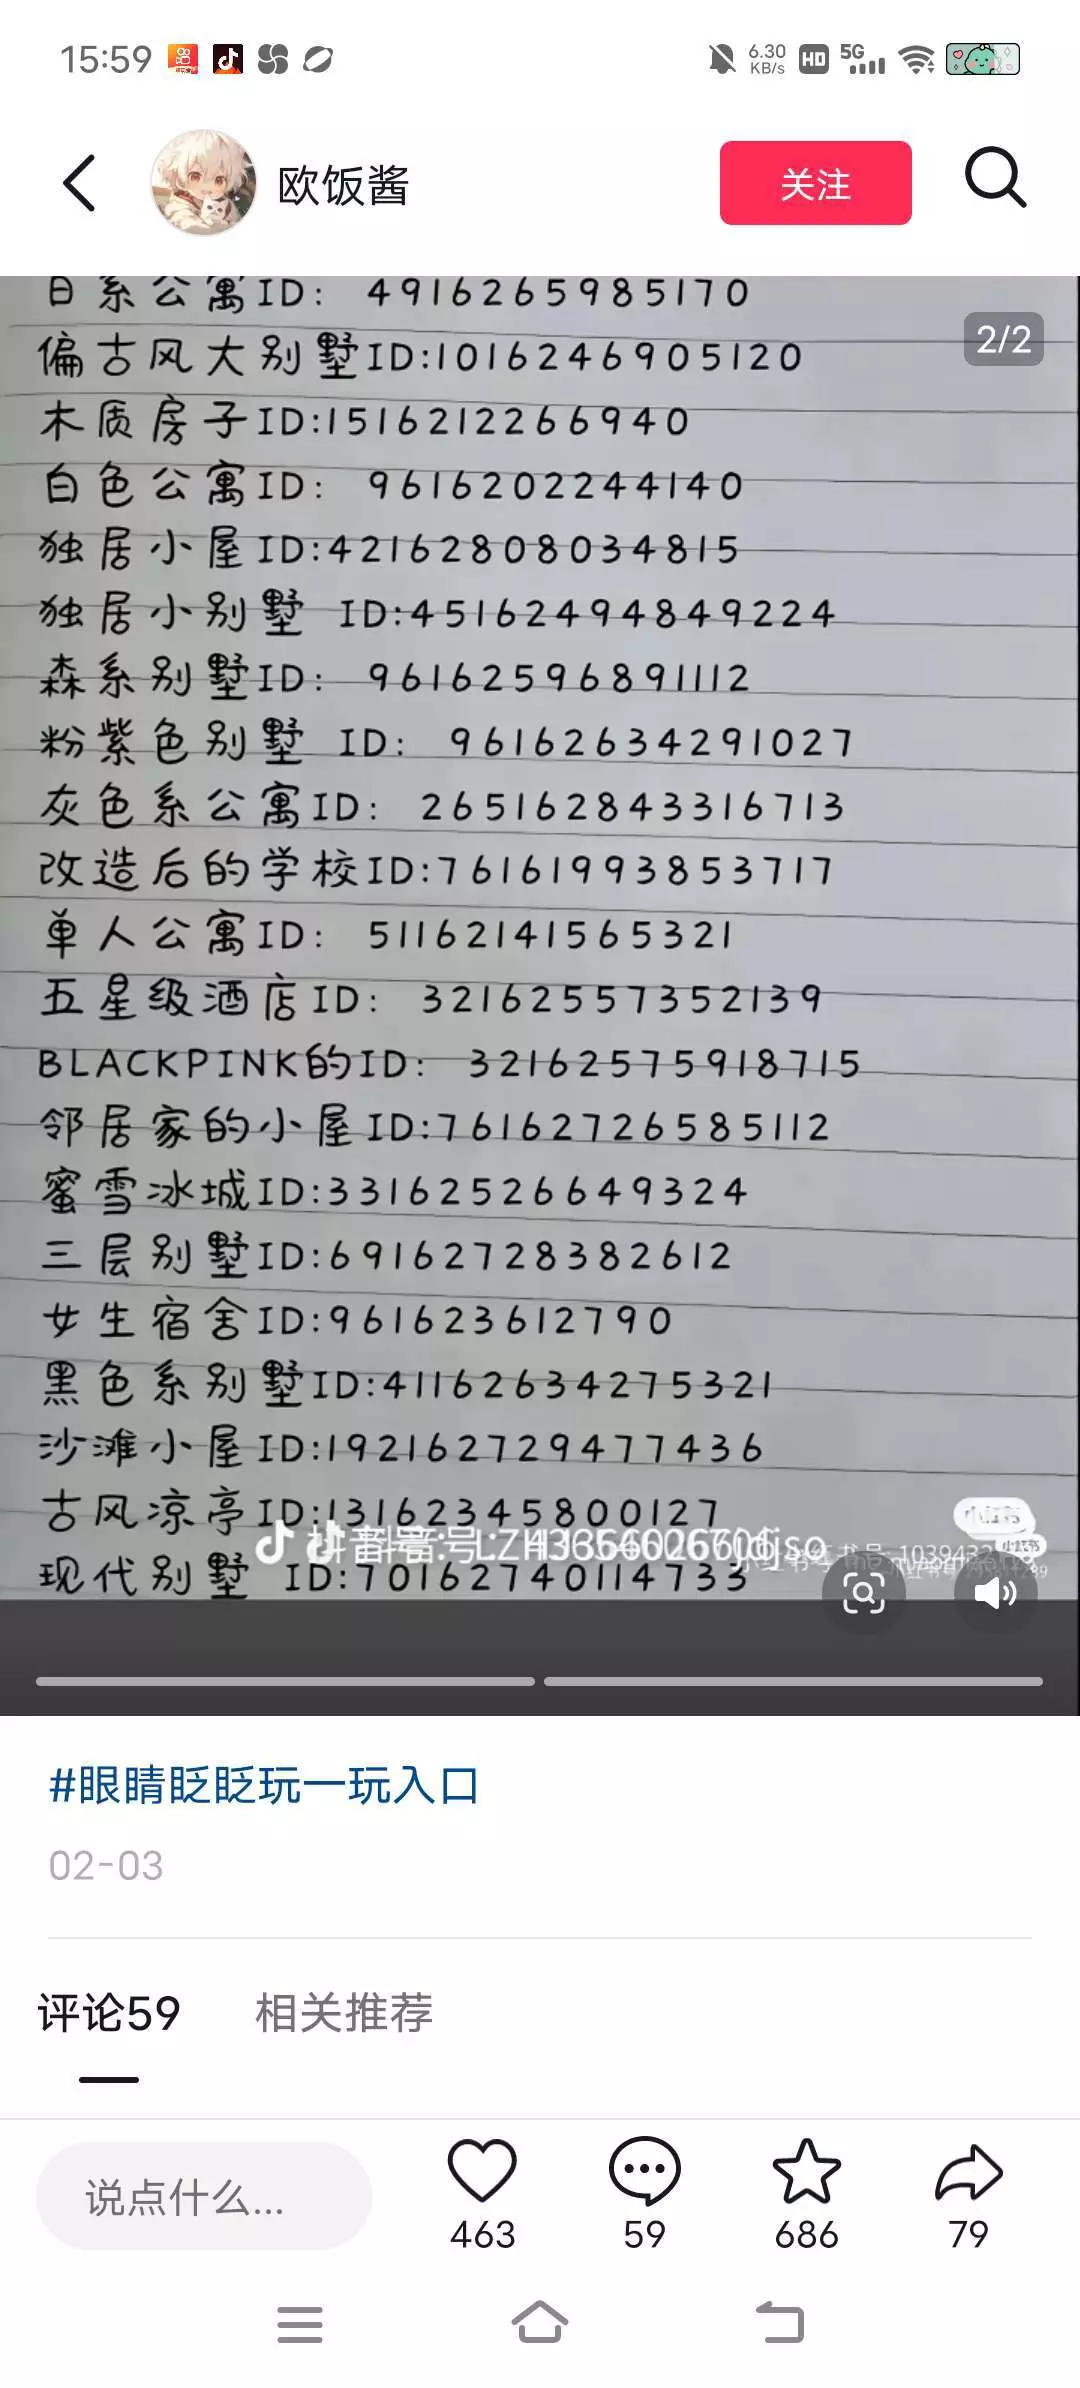 15:59
6.30 KB/s HD 5G
欧饭酱
关注
日系公寓ID: 4916265985170
2/2
偏古风大别墅ID:1016246905120
木质房子ID:1516212266940
白色公寓ID: 9616202244140
独居小屋ID:42162808034815
独居小别墅 ID:45162494849224
森系别墅ID: 96162596891112
粉紫色别墅 ID: 96162634291027
灰色系公寓ID: 265162843316713
改造后的学校ID:76161993853717
单人公寓ID: 51162141565321
五星级酒店ID: 32162557352139
BLACKPINK的ID: 32162575918715
邻居家的小屋ID:76162726585112
蜜雪冰城ID:33162526649324
三层别墅ID:69162728382612
女生宿舍ID:961623612790
黑色系别墅ID:41162634275321
沙滩小屋ID:192162729477436
古风凉亭ID:13162345800127
小红书
现代别墅 ID:70162740114733
#眼睛眨眨玩一玩入口
02-03
评论59
相关推荐
说点什么...
463
59
686
79